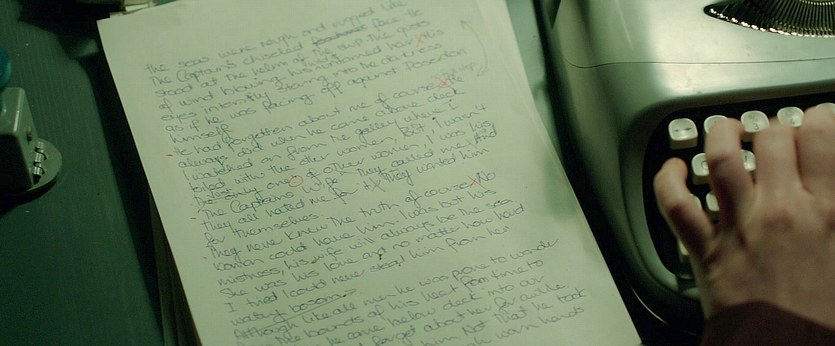 the seas were rough and
The Captains chiseled face he
stood at the helm of the ship the gusts
of wind blowing his untamed hair, his
eyes intensely staring into the darkness
as if he was facing off against Poseidon
himself
He had forgotten about me of course. He
always did when he came above deck
I watched on from the galley where I
toiled with the other women, But I wasn't
the same one of other women, I was his
The Captains Wife they called me. And
They all hated me for it. They wanted him
for themselves
They never knew the truth of course. No
woman could have him. I was but his
mistress, his wife will always be the sea
She was his love and no matter how hard
I tried I could never steal him from her
watery bosom
Although like all men he was prone to wander
the bounds of his heart from time to
he came below deck into our
forget about her for awhile
him Not that he took
worn hands